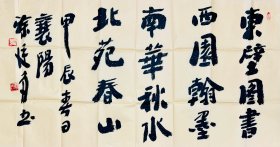 東壁图書
西園翰墨
南華秋水
北苑春山
甲辰春日
襄陽